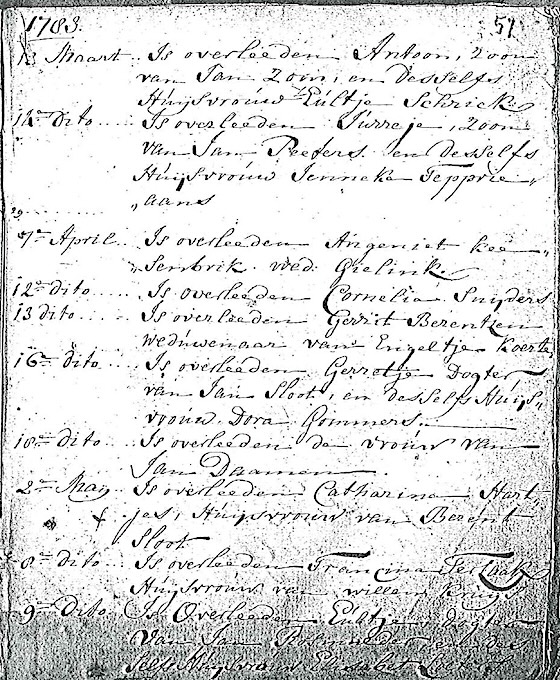 1783. 51
13 Maart .. Is overleeden Antoon, zoon
van Jan Zom, en desselfs
Huijsvrouw Eultje Schrick
14en dito .... Is overleeden Jurreje, zoon
van Jan Peeters en desselfs
Huijsvrouw Jenneke Tepprie„
„aans
7en April .. Is overleeden Angeniet kee„
„Sembrik wed. Gielink
12en dito ..... Is overleeden Cornelia Snyders
13 dito ..... Is overleeden Gerrit Berentzen
weduwenaar van Engeltje Koert
16en dito .... Is overleeden Gerrotje Dogter
van Jan Sloot, en desselfs Huijs„
vrouw Dora Gommers
18en dito .... Is overleeden de vrouw van
Jan Daamen
2en May .. Is overleeden Catharina Hart„
jes, Huijsvrouw van Berent
Sloot
8en dito ... Is overleeden Francina
Huijsvrouw van willem
9en Dito .. Is Overleeden Eultje Dogter
van Jan
selfs Huijsvrouw Elisabet